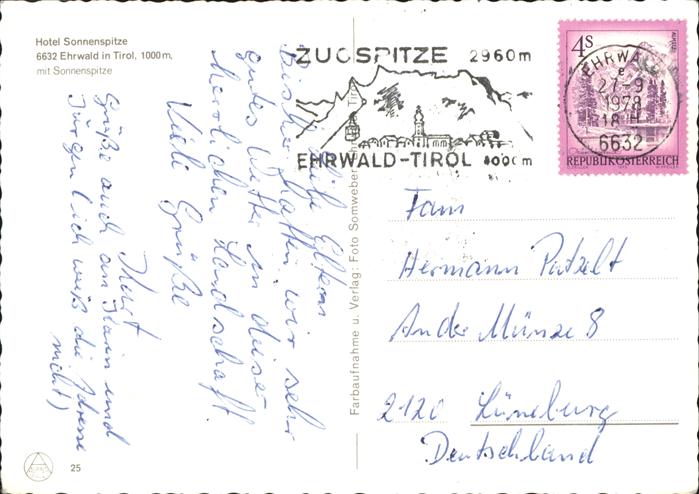 Hotel Sonnenspitze
6632 Ehrwald in Tirol, 1000 m,
mit Sonnenspitze
Liebe Eltern
Bisher hatten wir sehr
gutes Wetter in dieser
herrlichen Landschaft
Viele Grüße
Kurt
Grüße auch an Karin und
Jürgen (ich weiß die Adresse
nicht)
Farbaufnahme u. Verlag: Foto Somweber
Tirol
ZUGSPITZE 2960m
EHRWALD-TIROL 1000m
EHRWALD
e
27-9
1978
18
6632
4S
REPUBLIK ÖSTERREICH
Fam
Hermann Patzelt
An der Münze 8
2120 Lüneburg
Deutschland
25